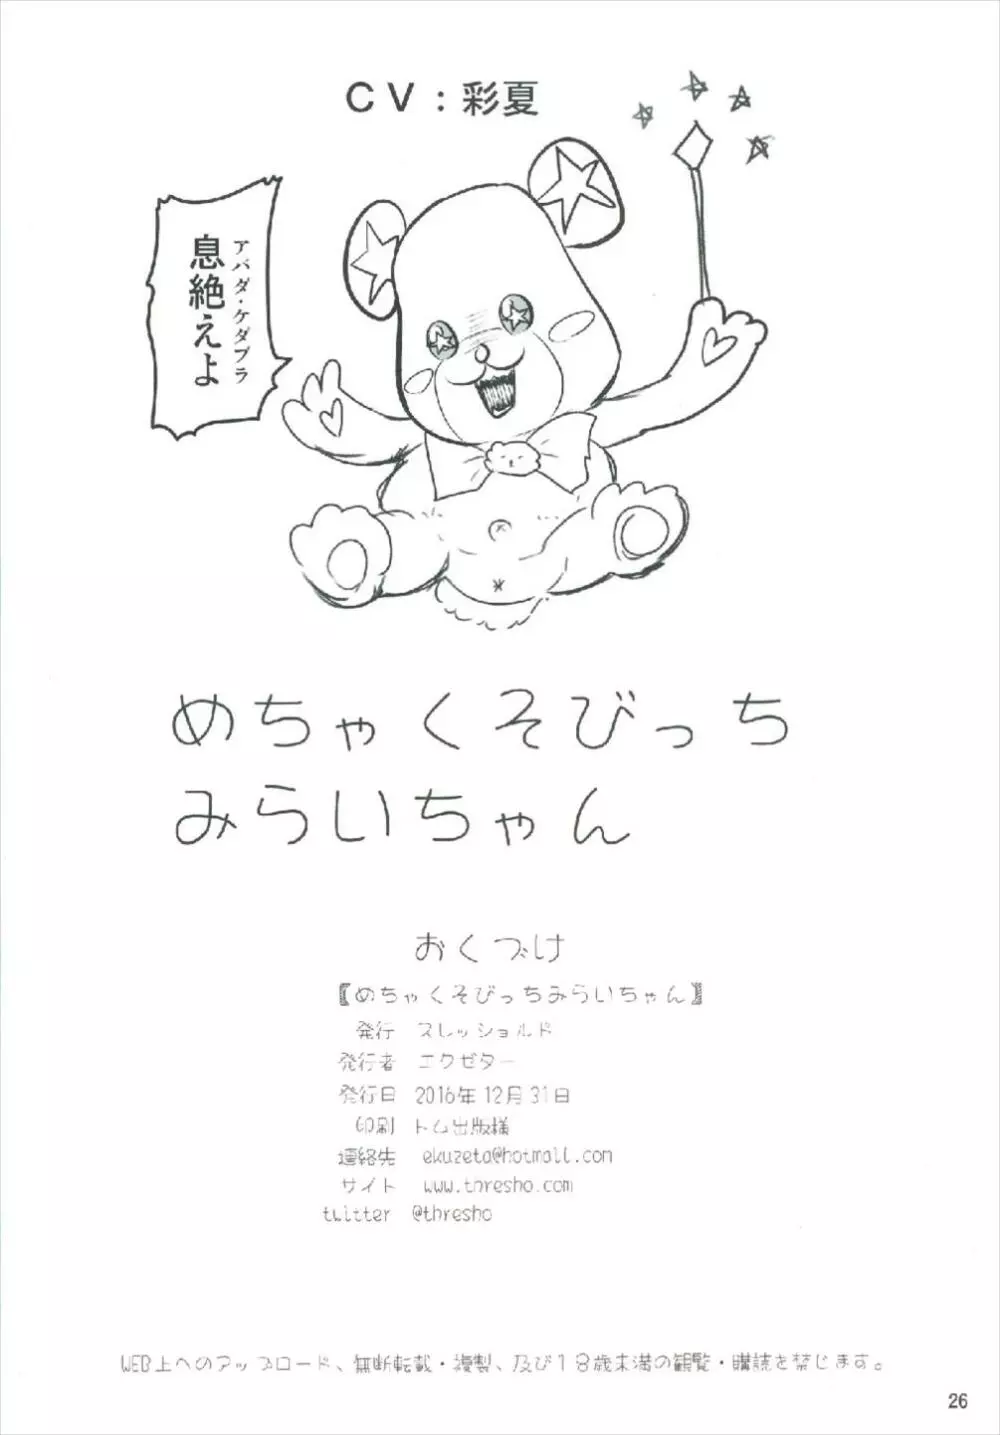 CV：彩夏
アバダ・ケダブラ
息絶えよ
めちゃくそびっち
みらいちゃん
おくづけ
『めちゃくそびっちみらいちゃん』
発行 スレッショルド
発行者 エクゼター
発行日 2016年12月31日
印刷 トム出版様
連絡先 ekuzeta@hotmail.com
サイト www.thresho.com
twitter @thresho
WEB上へのアップロード、無断転載・複製、及び18歳未満の観覧・購読を禁じます。
26